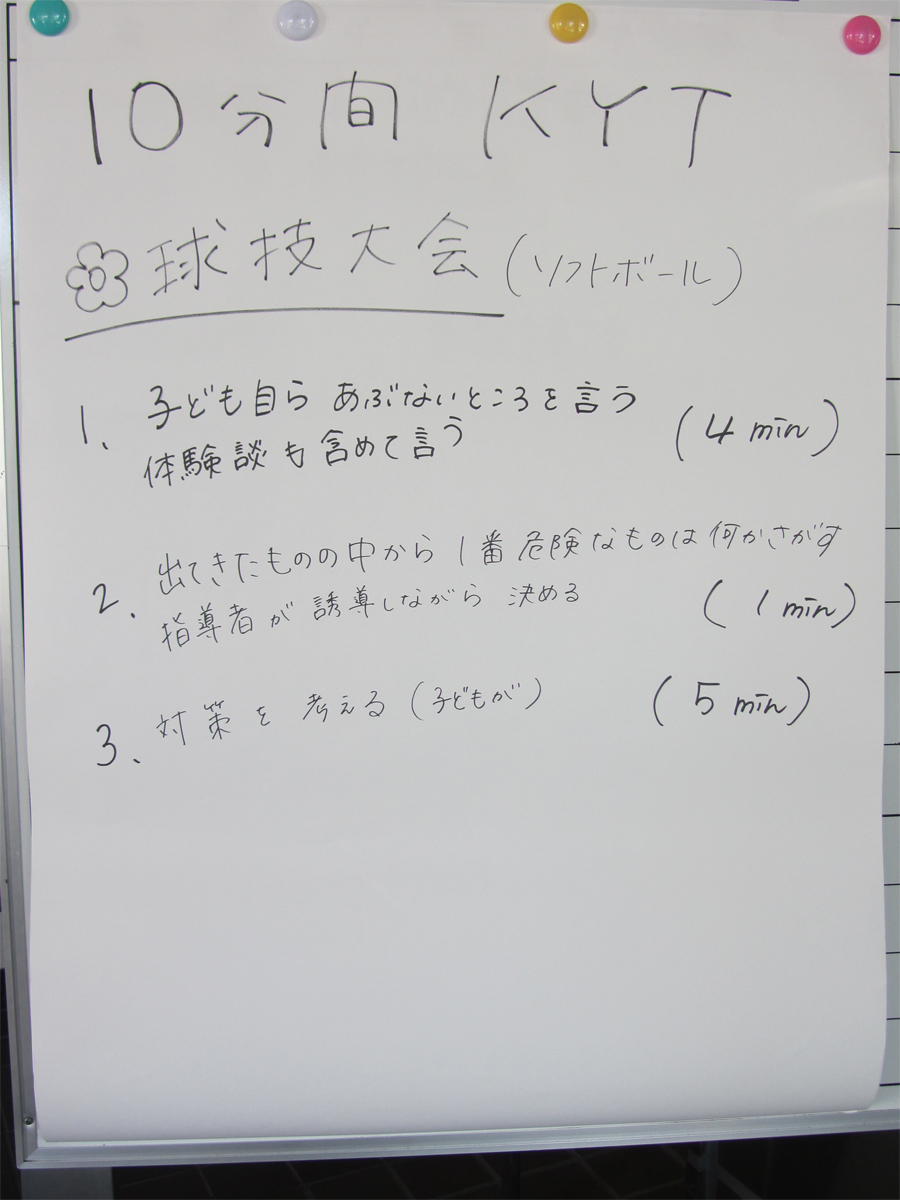 10分間 KYT
球技大会(ソフトボール)
1、子ども自ら あぶないところを言う
体験談も含めて言う (4min)
2、出てきたものの中から 1番危険なものは何かさがす
指導者が誘導しながら 決める (1min)
3、対策を考える(子どもが) (5min)